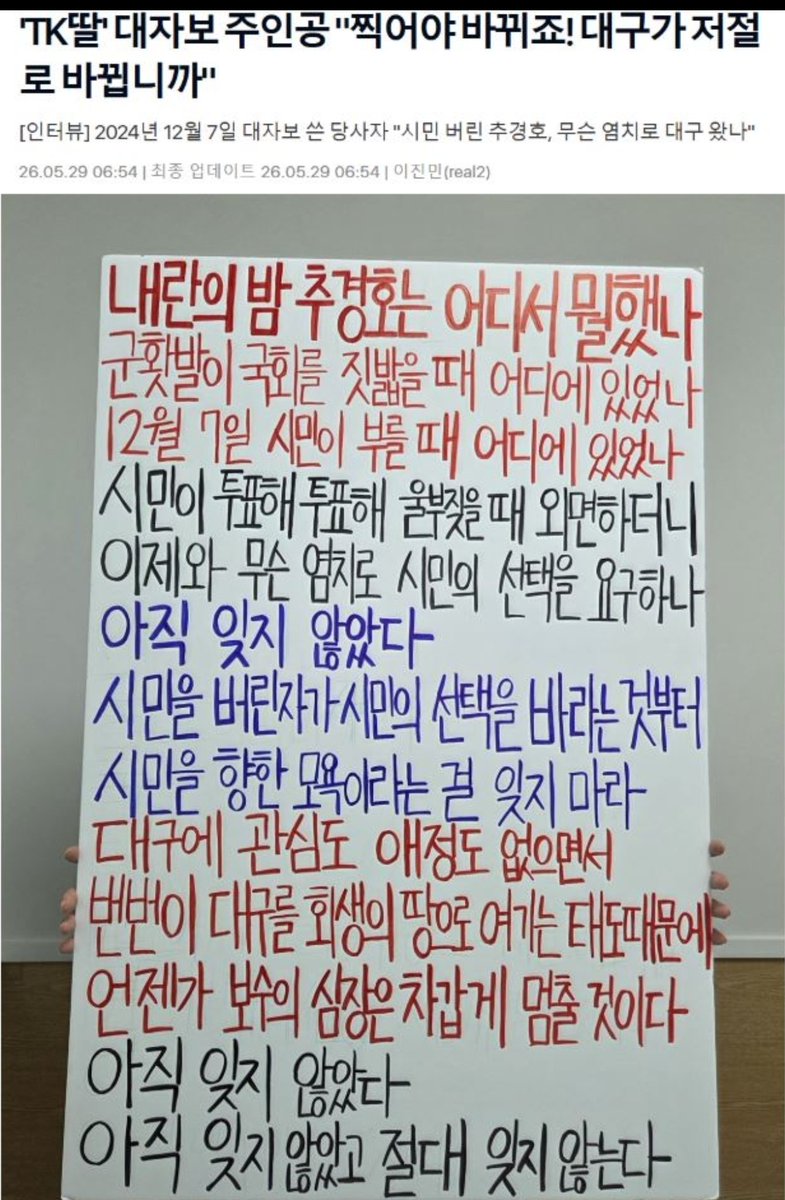 'TK딸' 대자보 주인공 "찍어야 바뀌죠! 대구가 저절
로 바뀝니까"
[인터뷰] 2024년 12월 7일 대자보 쓴 당사자 "시민 버린 추경호, 무슨 염치로 대구 왔나"
26.05.29 06:54 | 최종 업데이트 26.05.29 06:54 | 이진민(real2)
내란의 밤 추경호는 어디서 뭘했나
군홧발이 국회를 짓밟을 때 어디에 있었나
12월 7일 시민이 부를 때 어디에 있었나
시민이 투표해 투표해 울부짖을 때 외면하더니
이제와 무슨 염치로 시민의 선택을 요구하나
아직 잊지 않았다
시민을 버린자가 시민의 선택을 바라는 것부터
시민을 향한 모욕이라는 걸 잊지 마라
대구에 관심도 애정도 없으면서
번번이 대구를 회생의 땅으로 여기는 태도때문에
언젠가 보수의 심장은 차갑게 멈출 것이다
아직 잊지 않았다
아직 잊지 않았고 절대 잊지 않는다